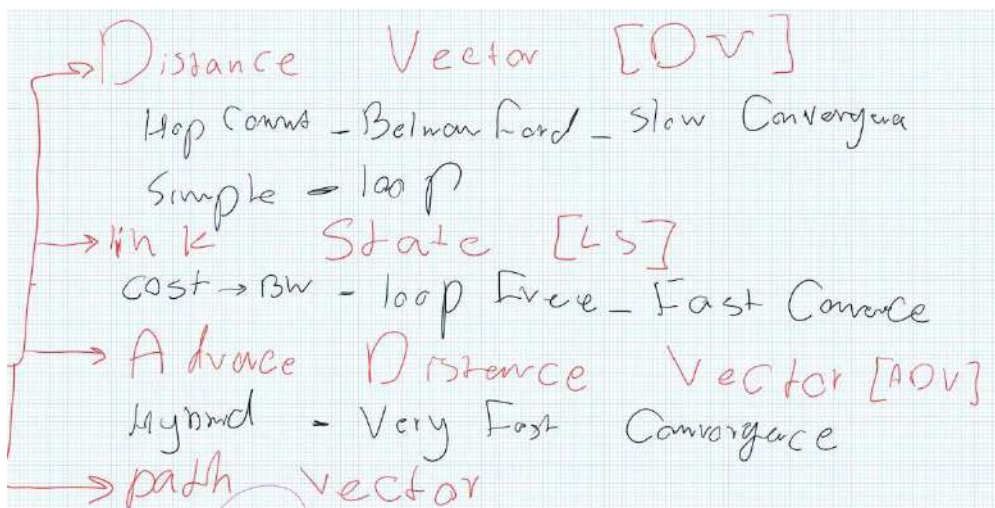 Distance Vector [DV]
Hop Count - Belman Ford - Slow Convergence
Simple - loop
link State [LS]
cost → BW - loop Free - Fast Converce
Advace Distance Vector [ADV]
Hybrid - Very Fast Convorgence
path vector